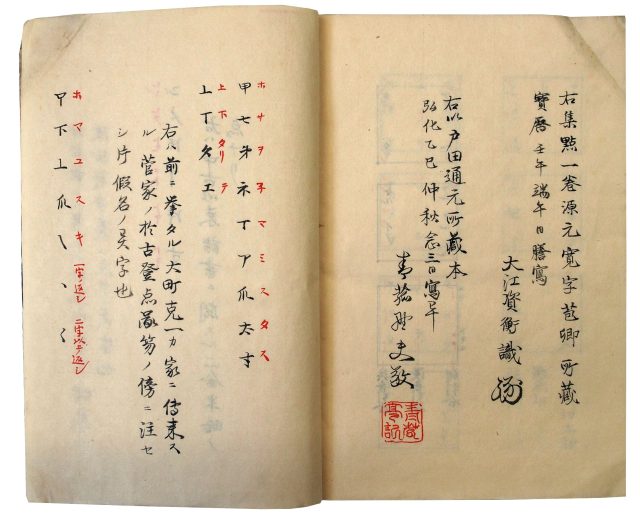 右集點一卷源元寛字苞卿所藏
寶曆壬午端午日謄寫
大江資衡識
右以戸田通元所藏本
弘化乙巳仲秋念三日寫畢
野史
ホナヲネマミスタス
甲七ネ丁ア爪太寸
上下タリテ
上丁久エ
右ハ前ニ挙タル大町克一カ家ニ傳来ス
ル菅家ノ於古登点ノ傍ニ注セ
シ片假名ノ異字也
ホマユスキ 一字ノ返し 二字以下ノ返し
下上爪㇏、〱